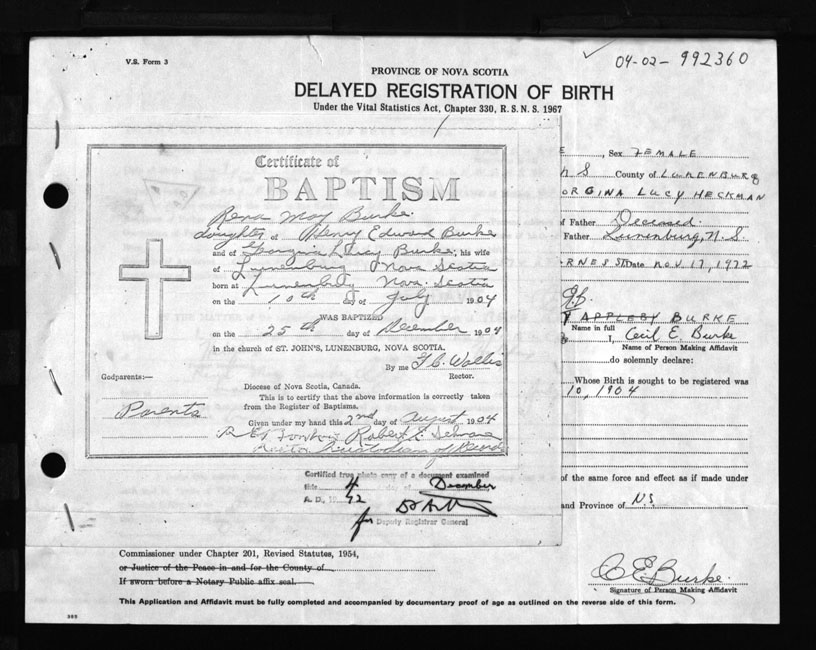 V.S. Form 3
04-02-992360
PROVINCE OF NOVA SCOTIA
DELAYED REGISTRATION OF BIRTH
Under the Vital Statistics Act, Chapter 330, R.S.N.S. 1967
Certificate of
BAPTISM
Rena May Burke
daughter of Henry Edward Burke
and of Georgina Lucy Burke, his wife
of Lunenburg Nova Scotia
born at Lunenburg Nova Scotia
on the 10th day of July 1904
WAS BAPTIZED
on the 25th day of December 1904
in the church of ST. JOHN'S, LUNENBURG, NOVA SCOTIA.
By me Wallis
Rector.
Godparents:—
Parents
Diocese of Nova Scotia, Canada.
This is to certify that the above information is correctly taken
from the Register of Baptisms.
Given under my hand this 2nd day of August 1904
Robert
Certified true photo copy of a document examined
this 4 day of December
A. D., 1972
for Deputy Registrar General
E , Sex FEMALE
N S County of LUNENBURG
ORGINA LUCY HECKMAN
f Father Deceased.
Father Lunenburg, N.S.
ORNES ST. Date NOV. 17, 1972
Y APPLEBY BURKE
Name in full
I, Cecil E. Burke
Name of Person Making Affidavit
do solemnly declare:
Whose Birth is sought to be registered was
10, 1904
of the same force and effect as if made under
and Province of N.S.
Commissioner under Chapter 201, Revised Statutes, 1954,
or Justice of the Peace in and for the County of
If sworn before a Notary Public affix seal.
C E Burke.
Signature of Person Making Affidavit
This Application and Affidavit must be fully completed and accompanied by documentary proof of age as outlined on the reverse side of this form.